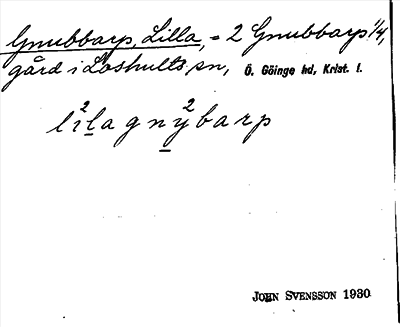 Gnubbarp, Lilla, = 2 Gnubbarp 1/4,
gård i Loshults sn, Ö. Göinge hd, Krist. l.
li²lagny²barp
JOHN SVENSSON 1930